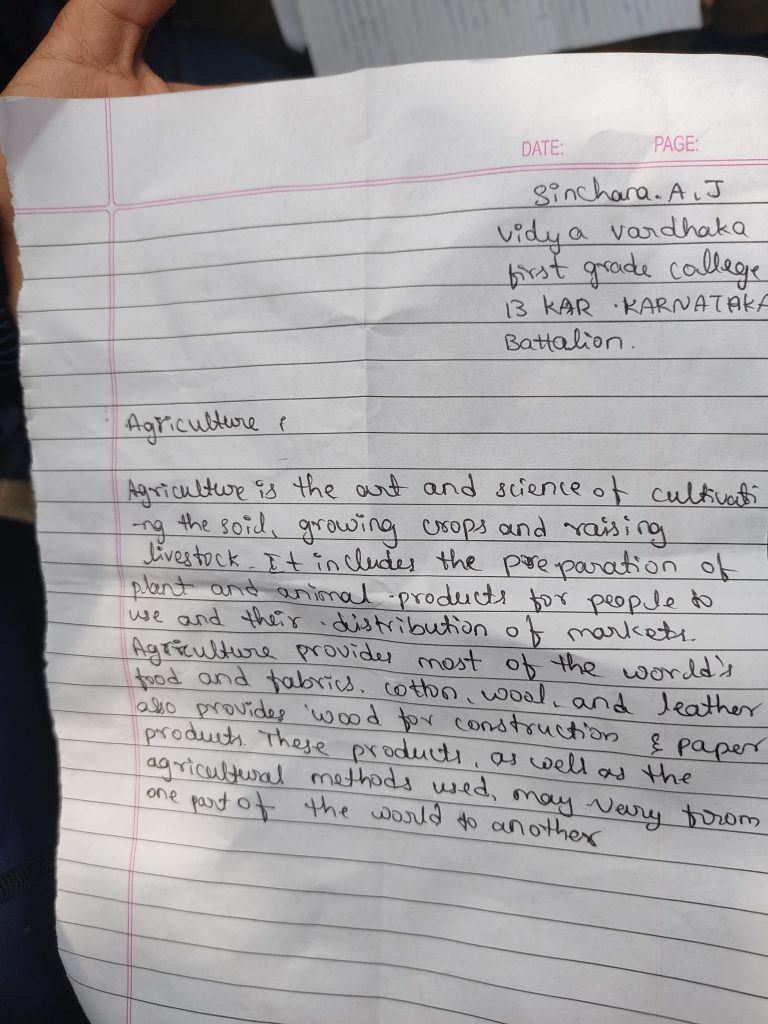 DATE: PAGE:
Sinchana. A. J
Vidya vardhaka
first grade college
13 KAR . KARNATAKA
Battalion.
Agriculture :
Agriculture is the art and science of cultivati
-ng the soil, growing crops and raising
livestock. It includes the preparation of
plant and animal products for people to
use and their distribution of markets.
Agriculture provides most of the world's
food and fabrics. cotton, wool, and leather
also provides wood for construction & paper
products. These products, as well as the
agricultural methods used, may vary from
one part of the world to another